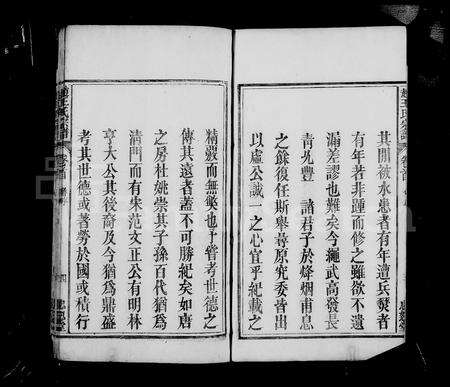 其間被水患者有年遭兵燹者
有年若非踵而修之雖欲不遺
漏差謬也難矣今繩武高發長
青光豐諸君子於烽烟甫息
之餘復任斯舉尋原究委皆出
以虛公誠一之心宜乎紀載之
精嚴而無獘也予嘗考世德之
傳其遠者蓋不可勝紀矣如唐
之房杜姚崇其子孫百代猶為
清門而有朱范文正公有明林
亨大公其後裔及今猶為鼎盛
考其世德或著勞於國或積行